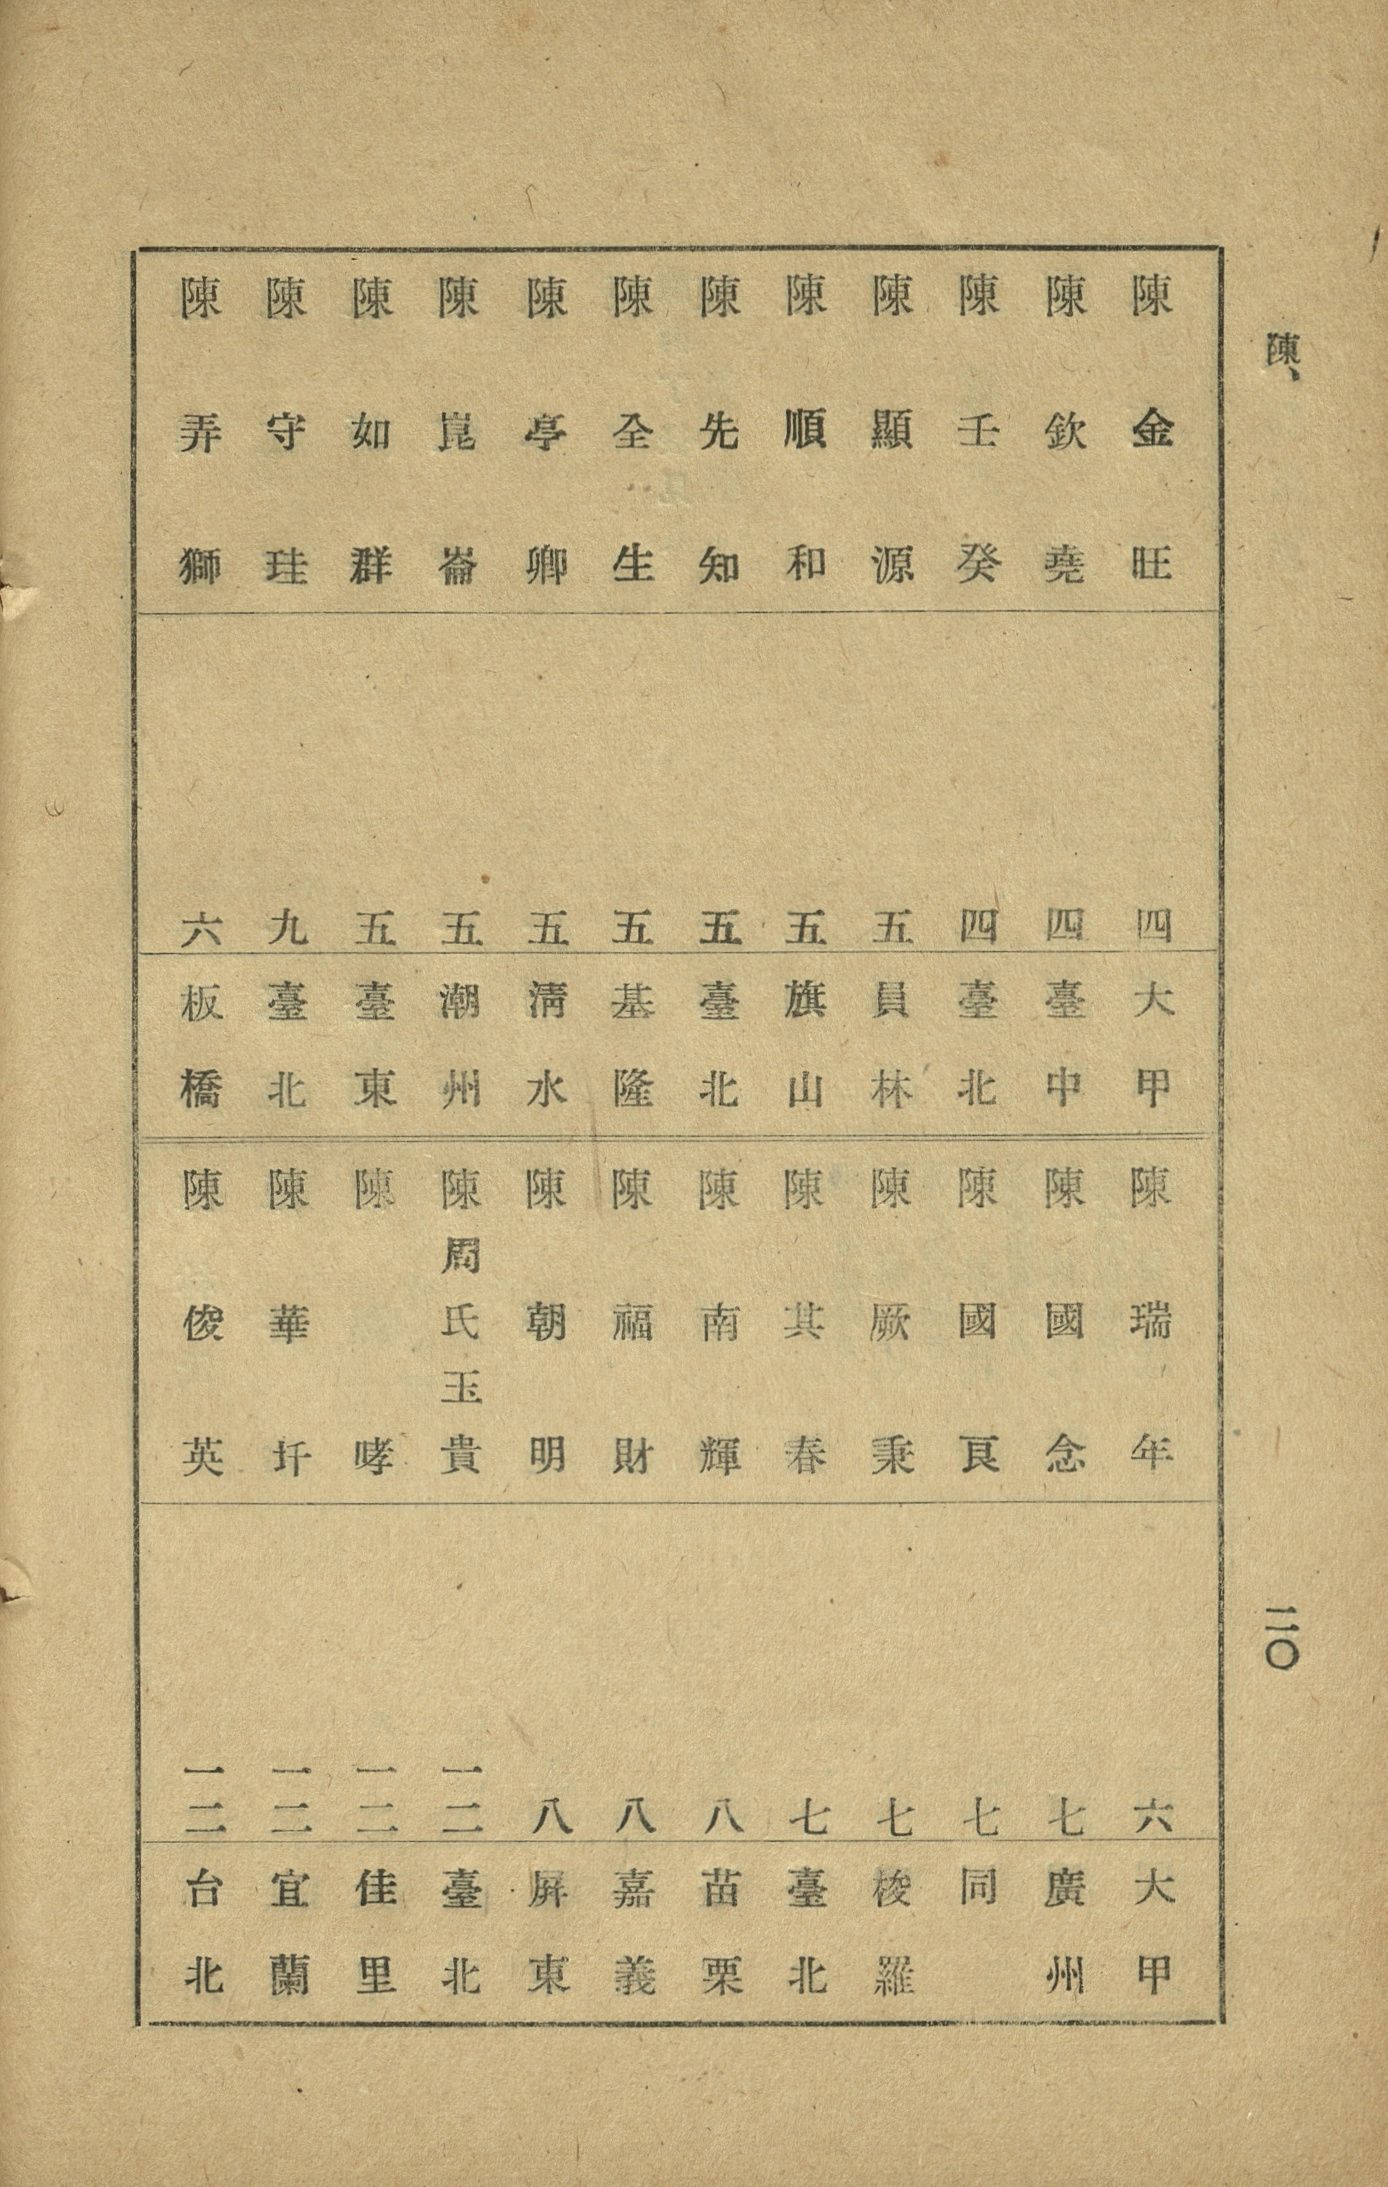 陳、
二〇
陳金旺 四 大甲
陳欽堯 四 臺中
陳壬癸 四 臺北
陳顯源 五 員林
陳順和 五 旗山
陳先知 五 臺北
陳全生 五 基隆
陳亭卿 五 淸水
陳崑崙 五 潮州
陳如群 五 臺東
陳守珪 九 臺北
陳弄獅 六 板橋
陳瑞年 六 大甲
陳國念 七 廣州
陳國良 七 同
陳厥秉 七 梭羅
陳其春 七 臺北
陳南輝 八 苗栗
陳福財 八 嘉義
陳朝明 八 屏東
陳周氏玉貴 一二 臺北
陳哮 一二 佳里
陳華圲 一二 宜蘭
陳俊英 一二 台北